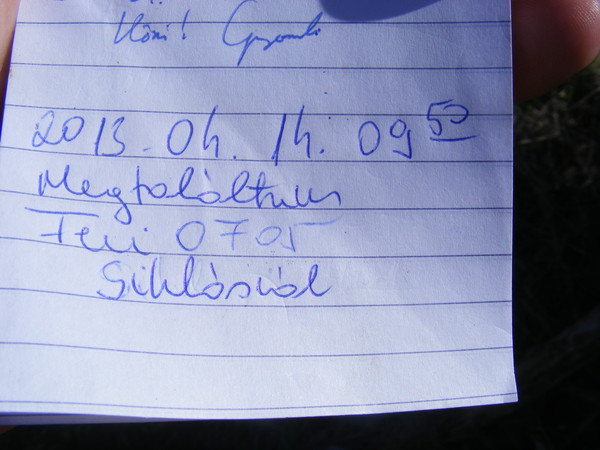 Köszi! Gyomli
2013.04.14. 09 50
Megtaláltuk
Feri 0705
Siklósról